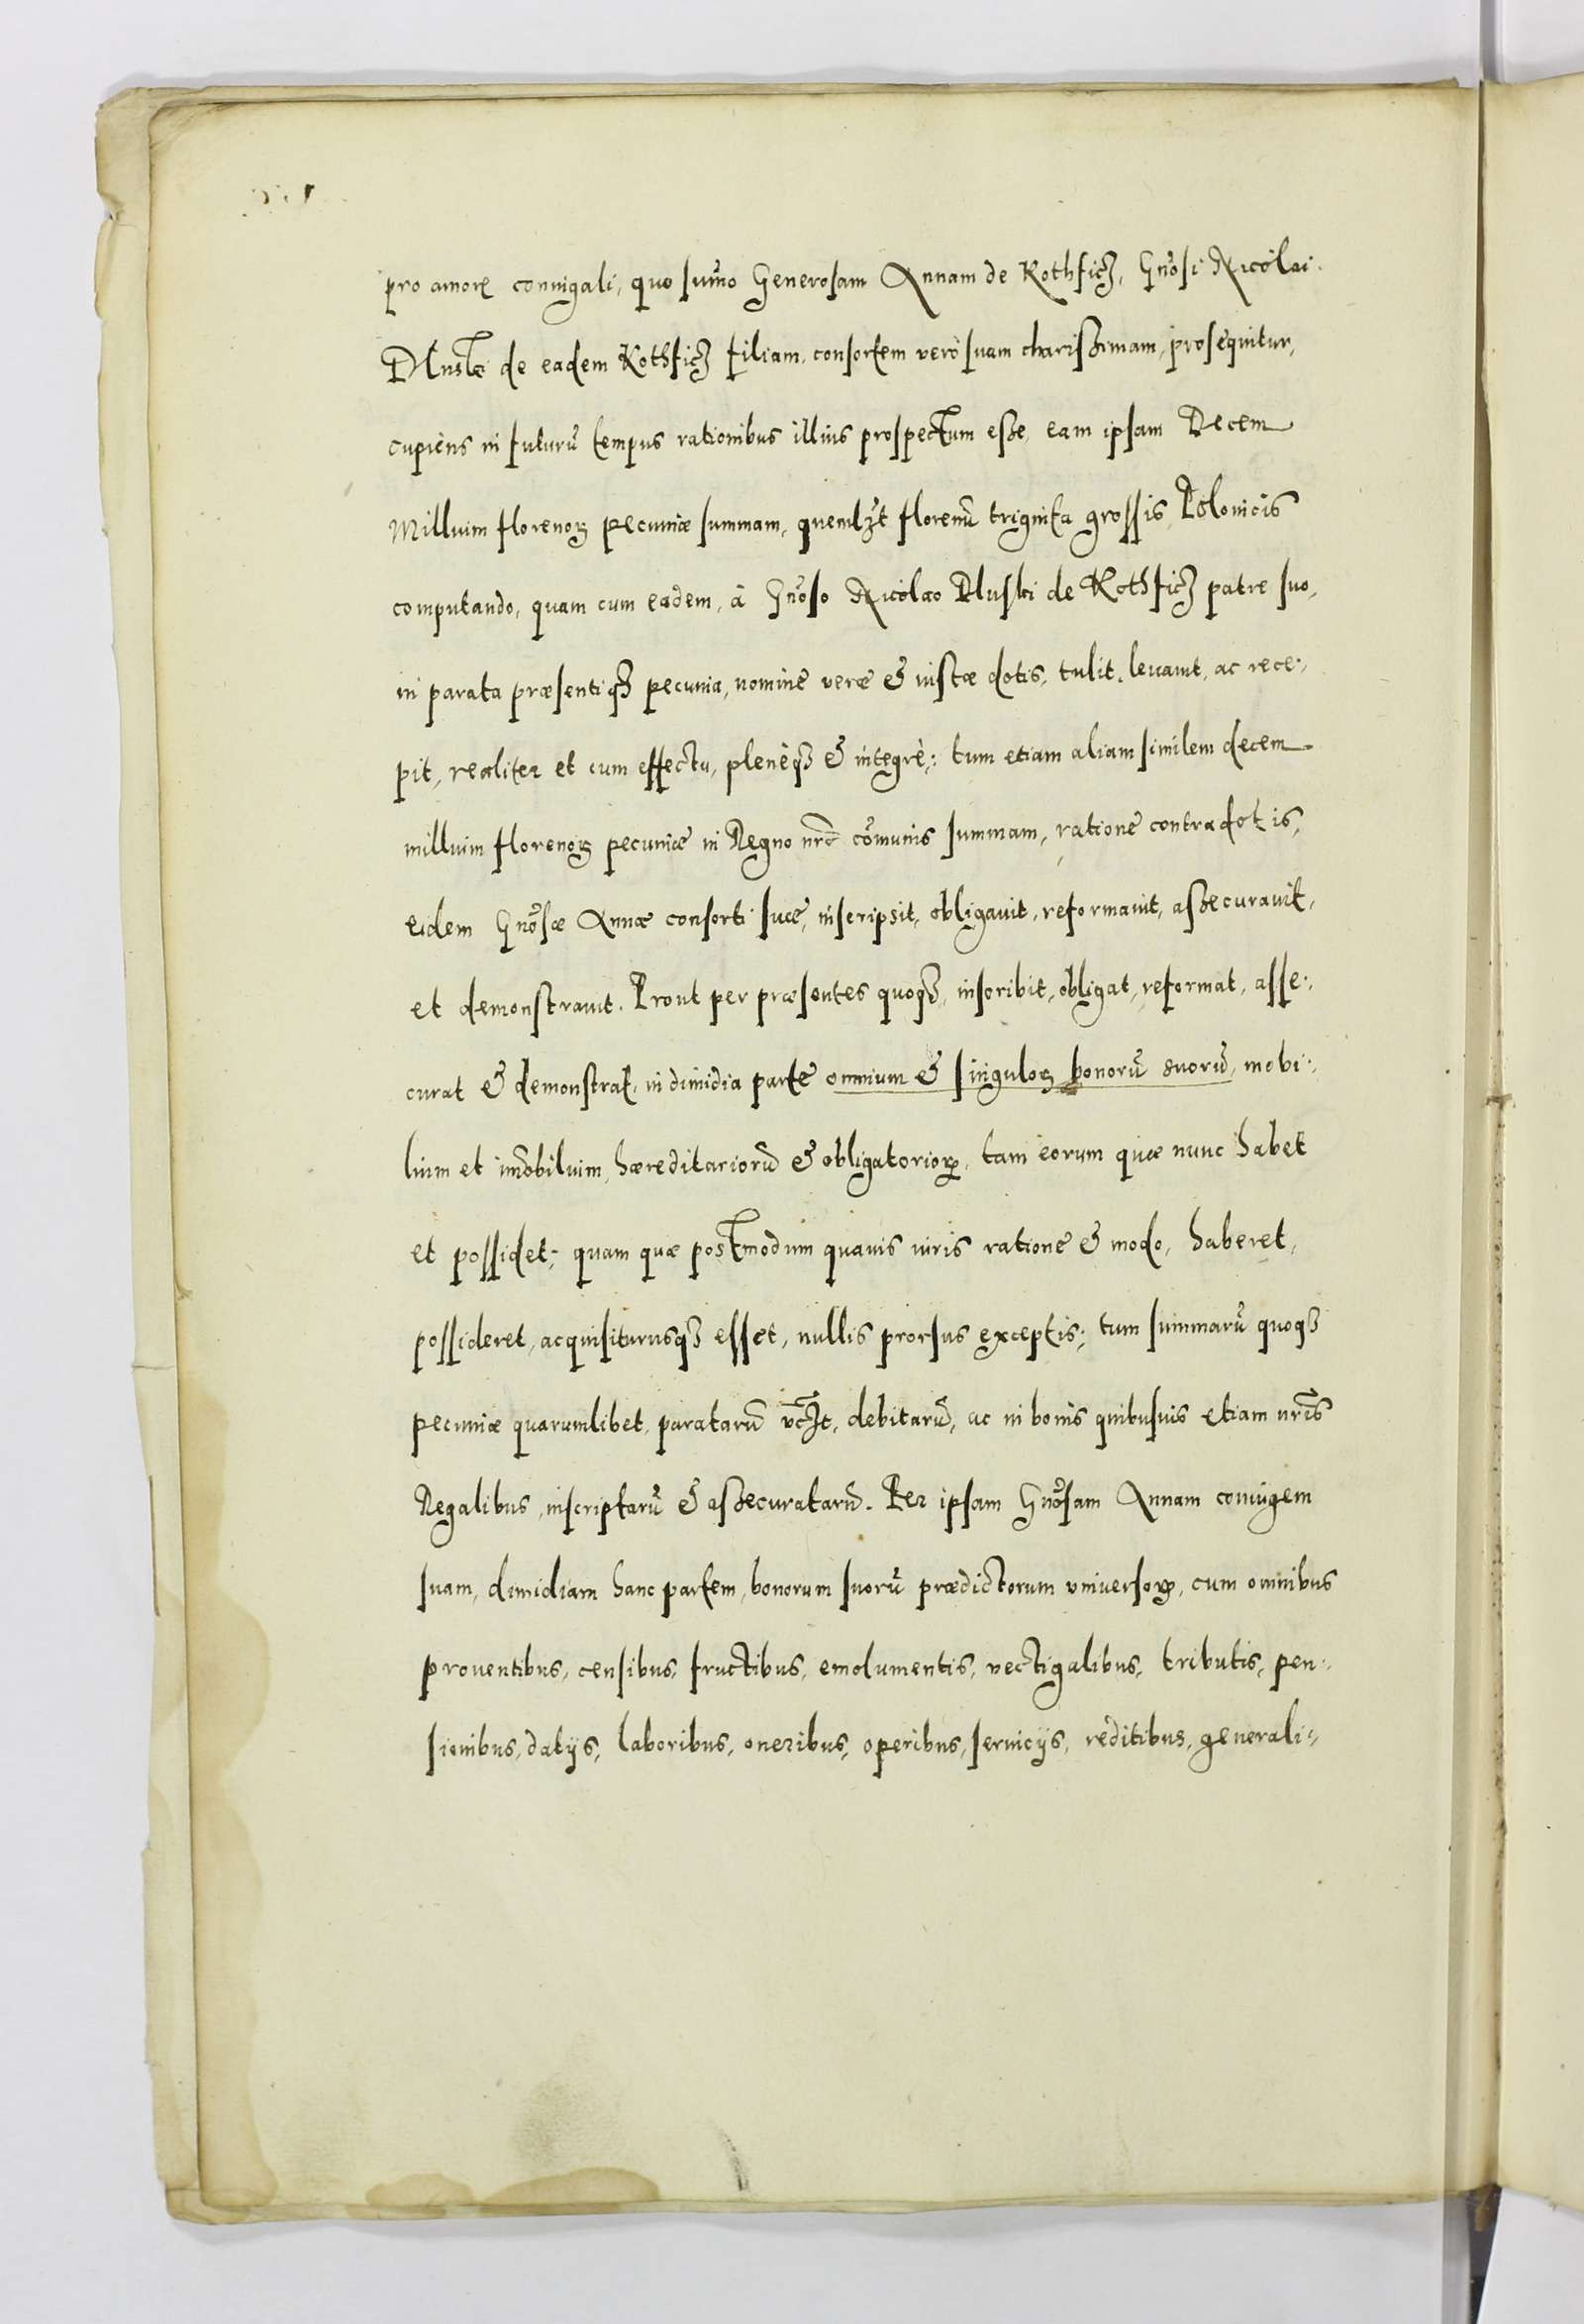 pro amore coniugali, quo sum̃o Generosam Annam de Kothficz, Gnõsi Nicolai
Dluski de eadem Kothficz filiam, consortem verò suam charissimam, prosequitur,
cupiens in futurũ tempus rationibus illius prospectum esse, eam ipsam Decem
Millium florenoꝝ pecuniæ summam, quemlꝫt florenũ triginta grossis Polonicis
computando, quam cum eadem, à Gnõso Nicolao Dluski de Kothficz patre suo,
in parata præsentiqꝫ pecunia, nomine veræ & iustæ dotis, tulit, leuauit, ac rece:,
pit, realiter et cum effectu, plenèqꝫ & integrè: tum etiam aliam similem decem
millium florenoꝝ pecuniæ in Regno nr̃o cõmunis summam, ratione contradotis,
eidem Gnõsæ Annæ consorti suæ, inscripsit, obligauit, reformauit, assecurauit,
et demonstrauit. Prout per præsentes quoqꝫ, inscribit, obligat, reformat, asse:,
curat & demonstrat, in dimidia parte omnium & singuloꝝ bonorũ suorũ, mobi:,
lium et im̃obilium, hæreditariorũ & obligatorioꝝ, tam eorum quæ nunc habet
et possidet; quam quæ postmodum quauis iuris ratione & modo, haberet,
possideret, acquisiturusqꝫ esset, nullis prorsus exceptis; tum summarũ quoqꝫ
pecuniæ quarumlibet, paratarũ debitarũ, ac in bonis quibusuis etiam nr̃is
Regalibus, inscriptarũ & assecuratarũ. Per ipsam Gnõsam Annam coniugem
suam, dimidiam hanc partem, bonorum suorũ prædictorum vniuersoꝝ, cum omnibus
prouentibus, censibus, fructibus, emolumentis, vectigalibus, tributis, pen:,
sionibus, datijs, laboribus, oneribus, operibus, seruicijs, reditibus, generali:,